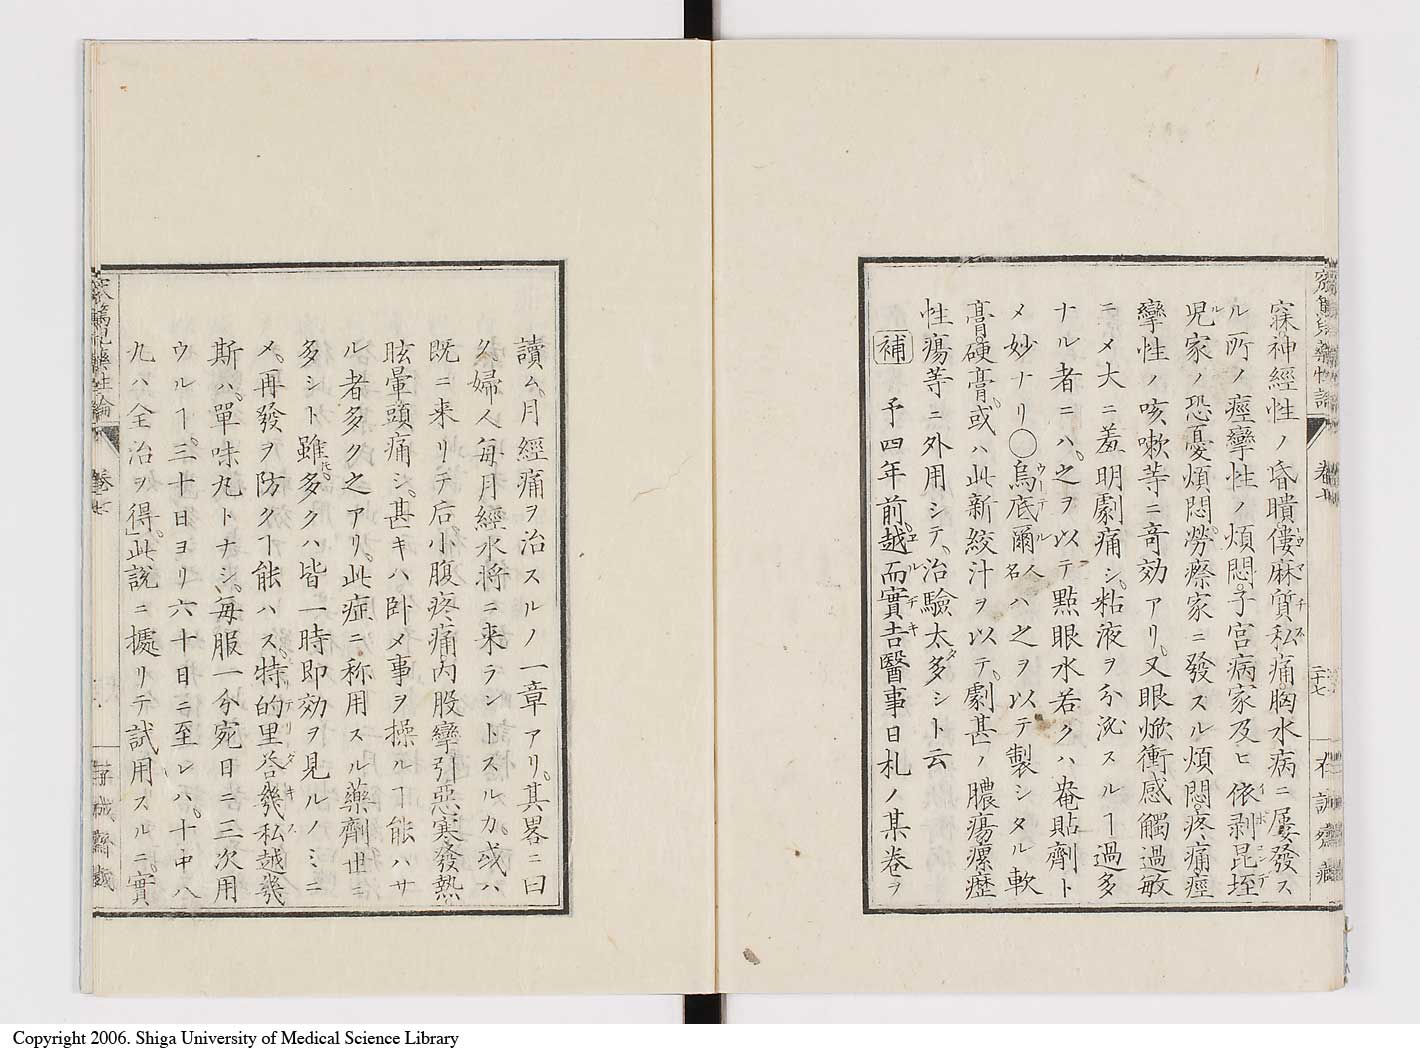 寐神經性ノ昏瞶僂麻質私痛胸水病ニ屡發ス
ル所ノ痙攣性ノ煩悶子宮病家及ヒ依剥昆垤
児家ノ恐憂煩悶勞瘵家ニ發スル煩悶疼痛痙
攣性ノ咳嗽等ニ竒効アリ又眼焮衝感觸過敏
ニメ大ニ羞明劇痛シ粘液ヲ分泌スルヿ過多
ナル者ニハ之ヲ以テ點眼水若クハ罨貼劑ト
メ妙ナリ○烏底爾人名ハ之ヲ以テ製シタル軟
膏硬膏或ハ此新絞汁ヲ以テ劇甚ノ膿瘍瘰歴
性瘍等ニ外用シテ治驗太多シト云
補 予四年前越而實吉醫事日札ノ某卷ヲ
讀ム月經痛ヲ治スルノ一章アリ其畧ニ曰
久婦人毎月經水将ニ来ラントスルカ或ハ
既ニ来リテ后小腹疼痛内股攣引惡寒發熱
眩暈頭痛シ甚キハ卧メ事ヲ操ルヿ能ハサ
ル者多ク之アリ此症ニ称用スル藥劑世ニ
多シト雖𪜈多クハ皆一時即効ヲ見ルノミニ
メ再發ヲ防クヿ能ハス特的里荅幾私越幾
斯ハ單味丸トナシ毎服一分宛日ニ三次用
ウルヿ三十日ヨリ六十日ニ至レハ十中八
九ハ全治ヲ得此説ニ據リテ試用スルニ實
卷七
二十七
卷七
Copyright 2006. Shiga University of Medical Science Library